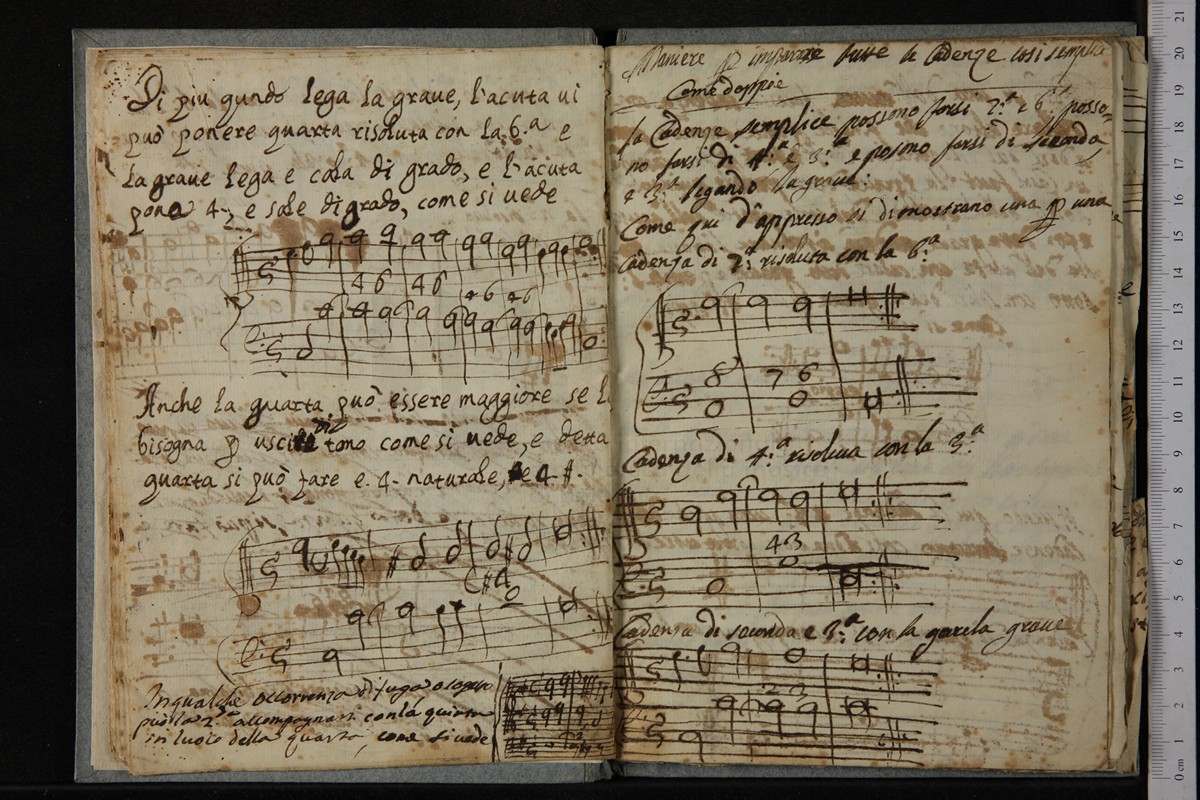 Di piu qundo lega la graue, l'acuta ui
può ponere quarta risoluta con la 6.a e
la graue lega e cala di grado, e l'acuta
pone 4, e sale di grado, come si uede
4 6 4 6 4 6 4 6
Anche la quarta può essere maggiore se
bisogna p uscire dal tono come si uede, e detta
quarta si può fare e. 4. naturale, e 4 #.
In qualche occorrenza di fuga o
può la 2.a accompagnarsi con la quinta
in luoco della quarta, come si uede
Maniere p imparare tutte le Cadenze così semplici
Come doppie
la Cadenze semplice possono farsi 2.a e 6.a posso=
no farsi di 4.a e 3.a e posono farsi di seconda,
e 3.a legando la graue:
Come qui d'appresso si dimostrano una p una
Cadenza di 7.a risoluta con la 6.a
8 7 6
Cadenza di 4.a risoluta con la 3.a
4 3
Cadenza di seconda e 3.a con la graue
2 3